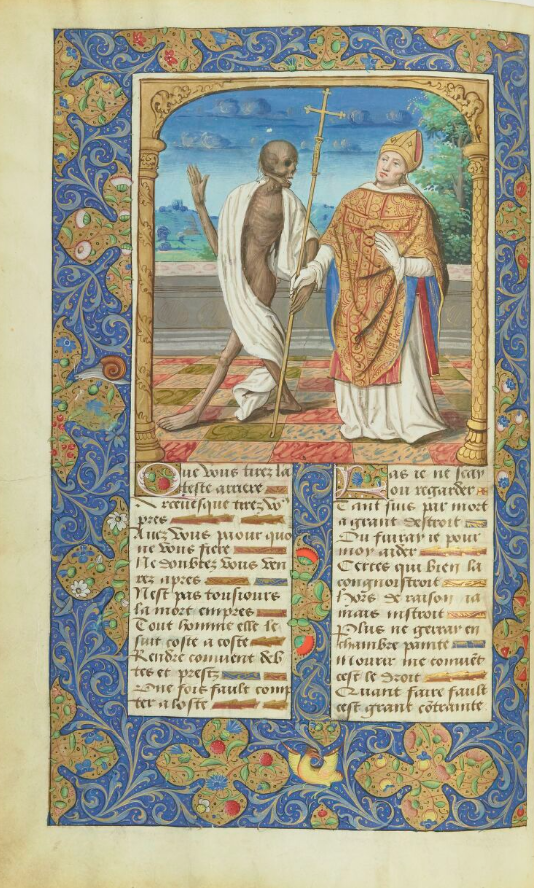 Que vous tirez la
teste arriere
Arcevesque tirez vo9
pres
Avez vous paour quo
ne vous fiere
Ne doubtez vous ven
rez apres
N'est pas tousiours
la mort empres
Tout homme elle le
suit coste a coste
Rendre convient deb
tes et prestz
Une fois fault comp
ter a loste
Las ie ne scay
ou regarder
Tant suis par mort
a grant destroit
Ou fuiray ie pour
moy aider
Certes qui bien la
congnoistroit
Hors de raison ia
mais nistroit
Plus ne gerray en
chambre painte
Mourir me convient
cest le droit
Quant faire fault
cest grant cõtrainte